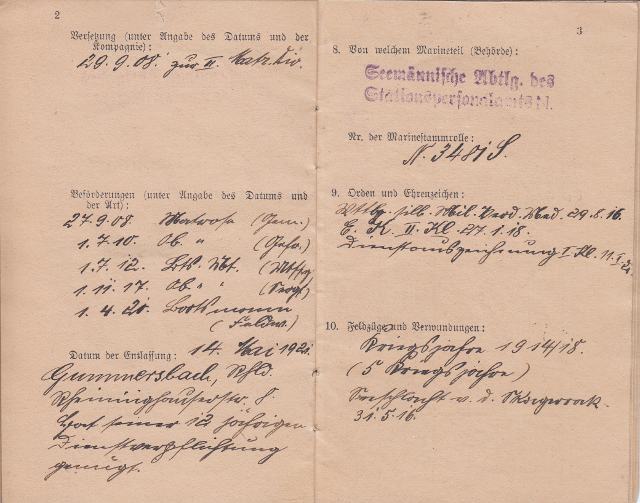 2
Versetzung (unter Angabe des Datums und der
Kompagnie):
29.9.08. zur II. Matr. Div.
Beförderungen (unter Angabe des Datums und
der Art):
27.9.08 Matrose (Gem.)
1.7.10. Ob. " (Gefr.)
1.7.12. Bts. Mt. (
1.11.17. Ob. " " (Sergt)
1.4.20. Bootsmann
(Feldw.)
Datum der Entlassung: 14. Mai 1920.
Gummersbach, Rhld.
8.
Hat seiner 12 jährigen
Dienstverpflichtung
genügt.
3
8. Von welchem Marineteil (Behörde):
Seemännische Abtlg. des
Stationspersonalamts N.
Nr. der Marinestammrolle:
N. 3481 S.
9. Orden und Ehrenzeichen:
Wttbg. silb. Mil. Verd. Med. 29.8.16.
E. K. II. Kl. 27.1.18.
Dienstauszeichnung I. Kl. 11.
10. Feldzüge und Verwundungen:
Kriegsjahre 1914/18.
(5 Kriegsjahre)
Seeschlacht v. d. Skagerrak.
31.5.16.